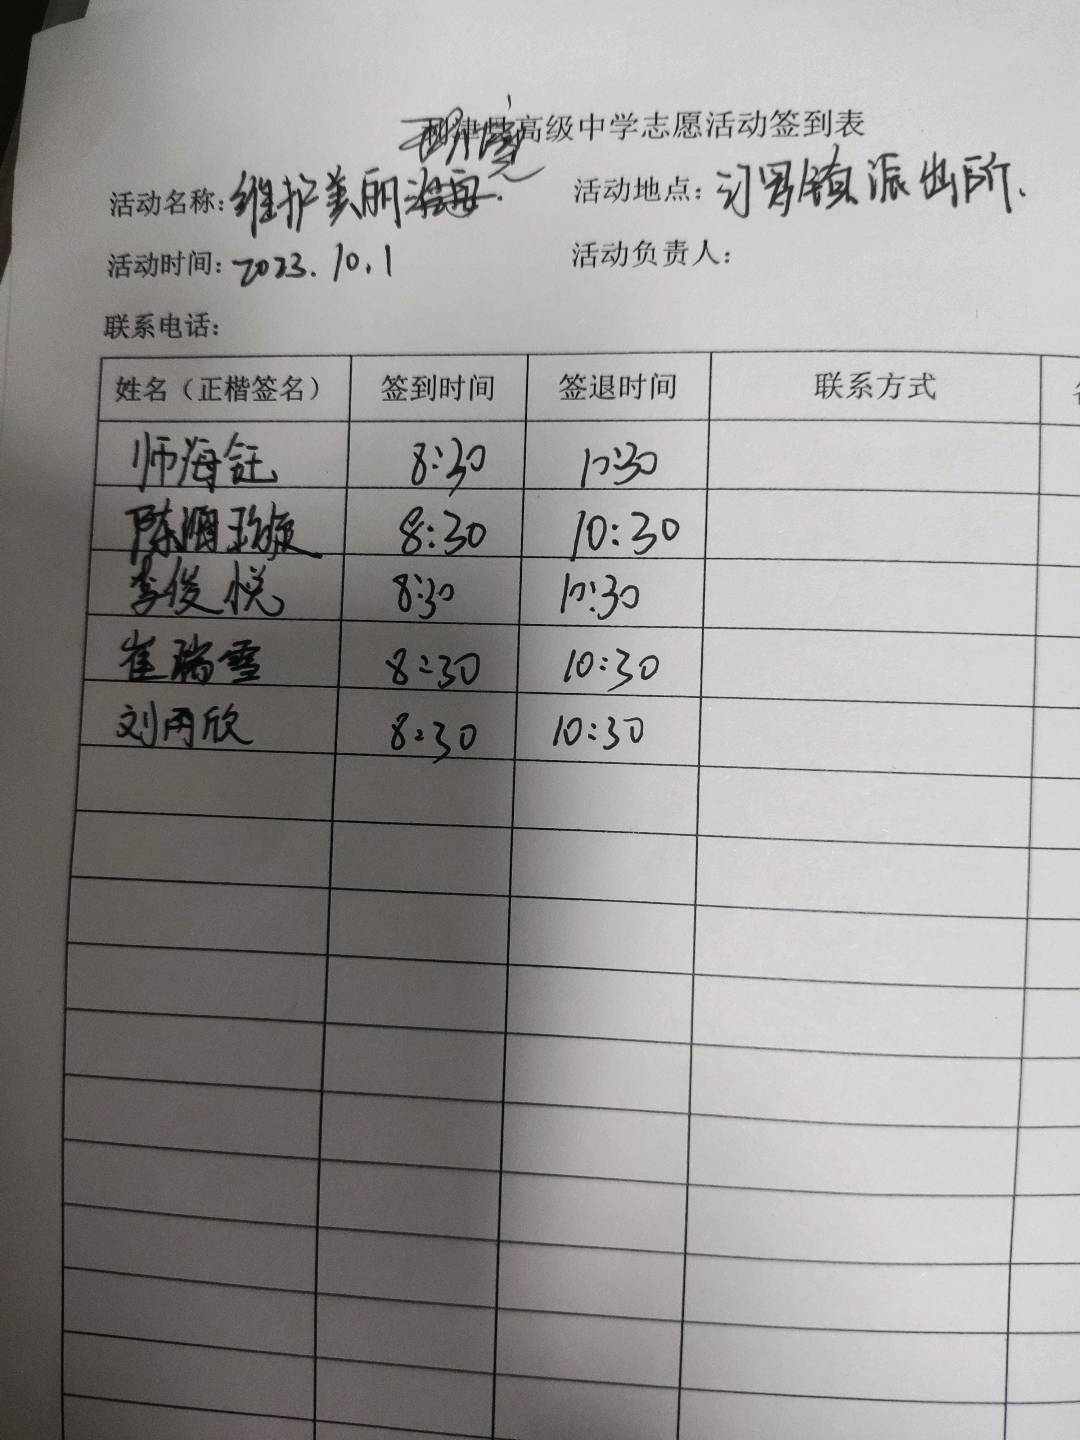 高级中学志愿活动签到表
活动名称：维护美丽 活动地点：习 镇派出所.
活动时间：2023.10.1 活动负责人：
联系电话：
姓名（正楷签名） 签到时间 签退时间 联系方式
师海钰 8:30 10:30
陈 8:30 10:30
李俊悦 8:30 10:30
崔瑞雪 8:30 10:30
刘雨欣 8:30 10:30